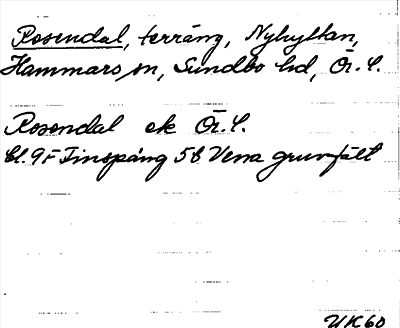 Rosendal, terräng, Nyhyttan,
Hammars sn, Sundbo hd, Ör. l.
Rosendal ek Ör. l.
Bl. 9F Finspång 5b Vena gruvfält
UK60